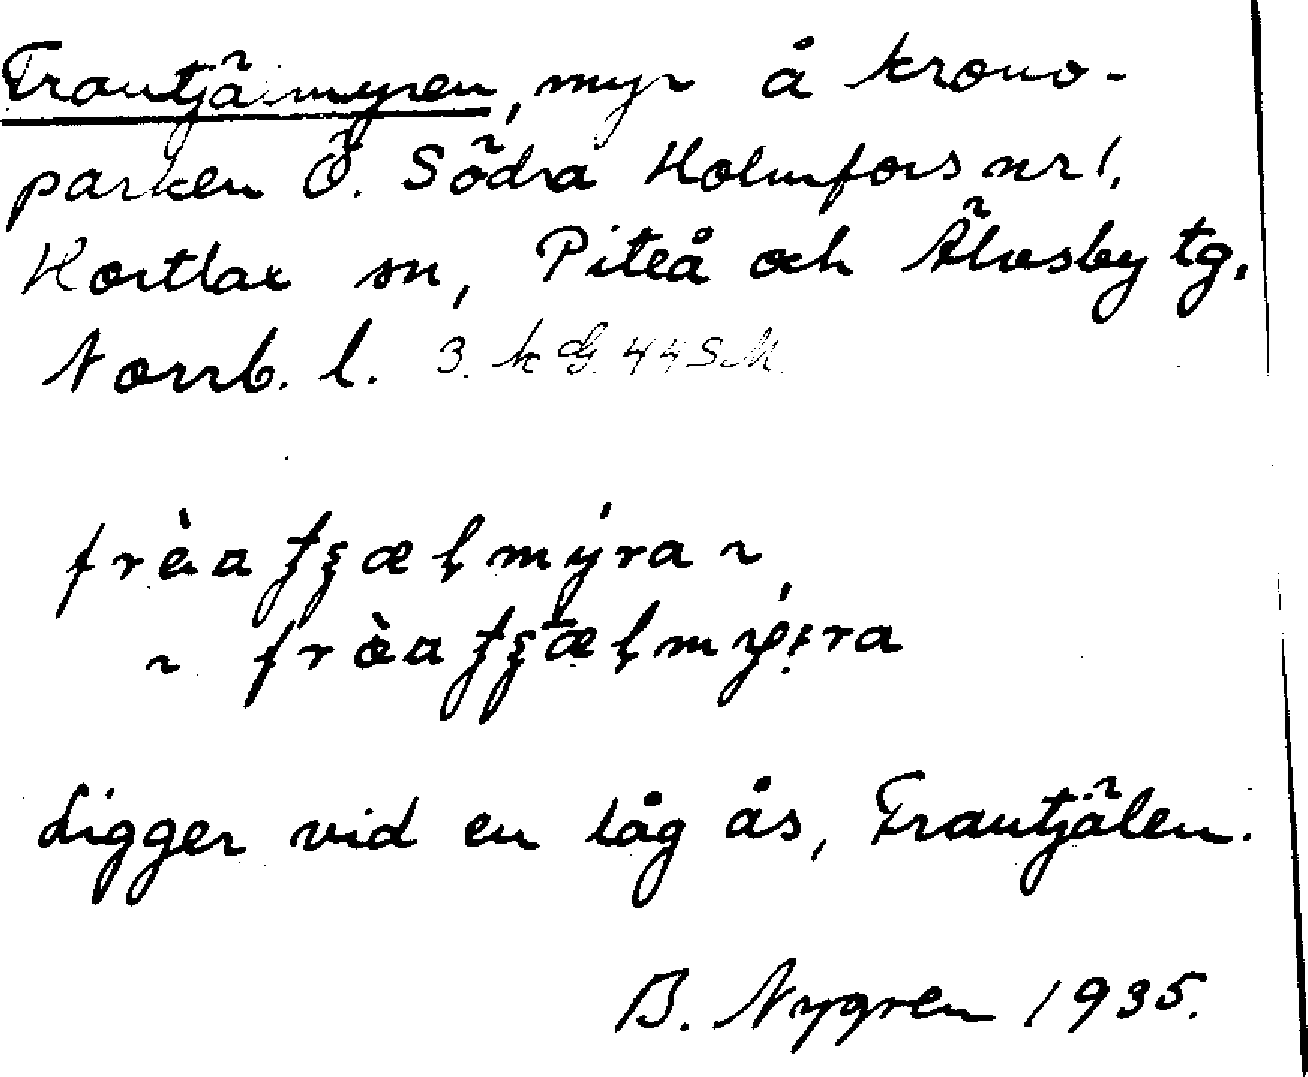 Frautjälmyren, myr å krono-
parken Ö. Södra Holmfors nr 1,
Hortlax sn, Piteå och Älvsby tg,
Norrb. l. 3. k G. 44 SM.
~
~
Ligger vid en låg ås, Frautjälen.
B. Nygren 1935.